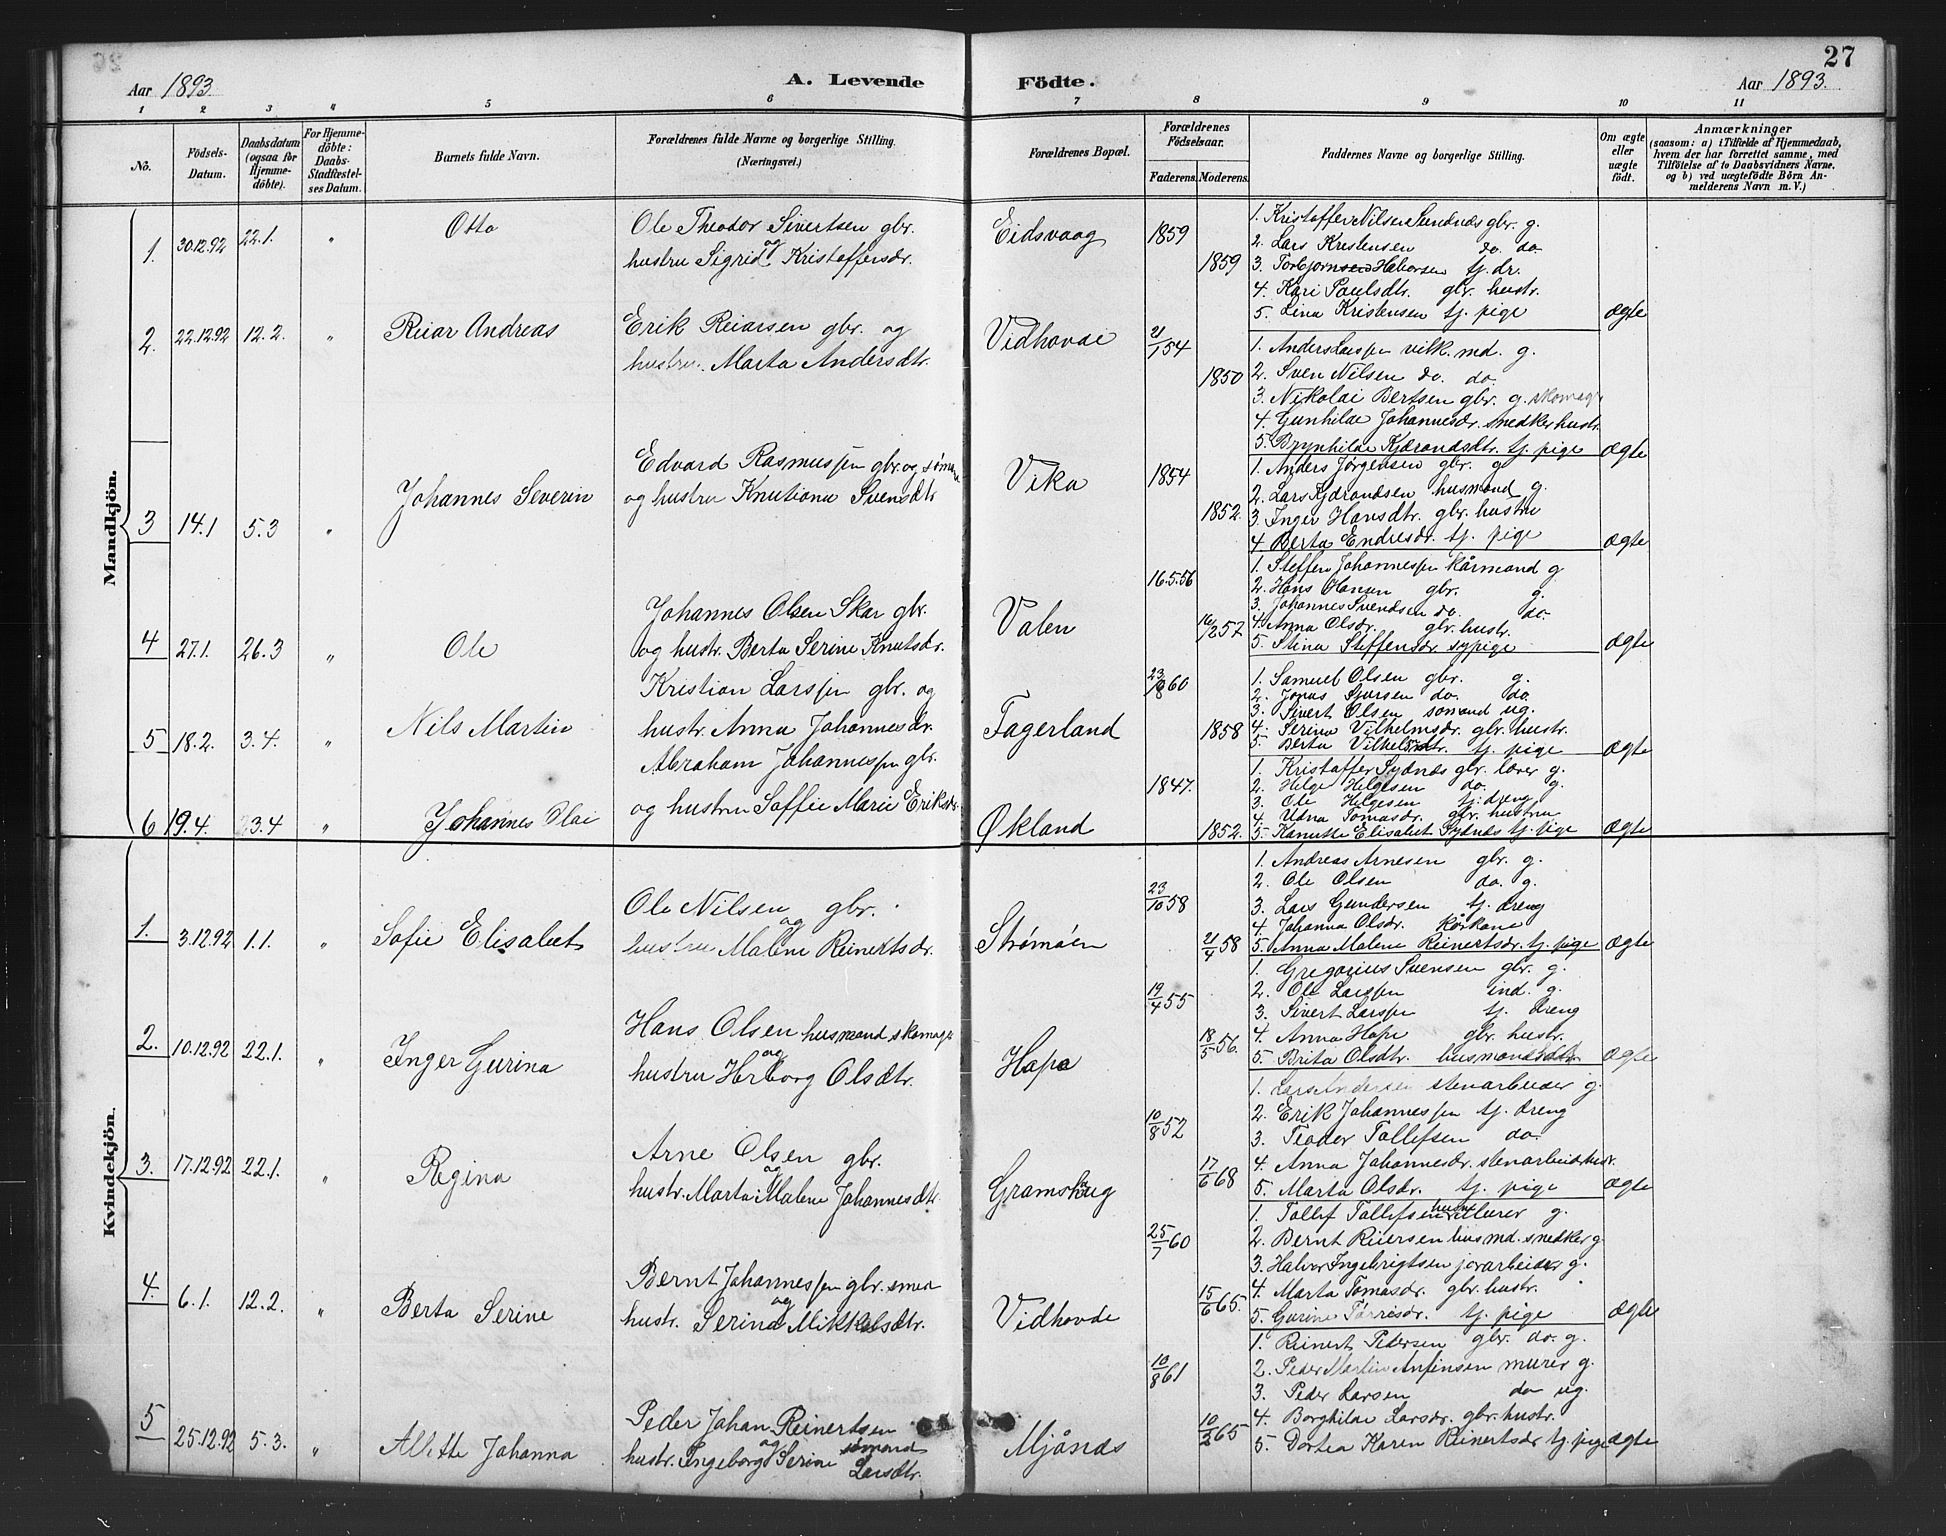 27
Aar 1893.
A. Levende
Födte.
Aar 1893.
1 2 3 " 5 6 7 8 9 10 11
No.
Födsels-
Datum.
Daabsdatum
(ogsaa for
Hjemme-
döbte).
For Hjemme-
döbte:
Daabs-
Stadfæstel-
ses Datum.
Barnets fulde Navn.
Forældrenes fulde Navne og borgerlige Stilling.
(Næringsvei.)
Forældrenes Bopæl.
Forældrenes
Födselsaar.
Faderens. Moderens.
Faddernes Navne og borgerlige Stilling.
Om ægte
eller
uægte
födt.
Anmærkninger
(saasom: a) i Tilfælde af Hjemmedaab,
hvem der har forrettet samme, med
Tilföielse af to Daabsvidners Navne.
og b) ved uægtefödte Börn An-
melderens Navn m. V.)
Mandkjön.
1. 30.12.92 22.1. " Otto
Ole Theodor Sivertsen gbr.
og
hustru Sigrid Kristoffersdr.
Eidsvaag 1859
1859
1. Kristoffer Nilsen Sundnæs gbr. g.
2. Lars Kristensen do. do.
3. Torbjørnsen Halvorsen tj. dr.
4. Kari Paulsdtr. gbr. hustr.
5. Lina Kristensen tj. pige ægte
2. 22.12.92 12.2. " Reiar Andreas
Erik Reiarsen gbr. og
hustru. Marta Andersdtr.
Vidhovde 21/1 54
1850
1. Anders Larssen vilk. md. g.
2. Sven Nilsen do. do.
3. Nikolai Bertsen gbr. g. skomag.
4. Gunhilde Johannesdr. snedker hustr.
5. Brynhilde Kjærandsdtr. tj. pige ægte
3 14.1 5.3 " Johannes Severin
Edvard Rasmussen gbr. og sømand
og hustru Knutiana Svensdtr
Vika 1854
1852.
1. Anders Jørgensen gbr. g
2. Lars Kjærandsen husmand g.
3. Inger Hansdtr. gbr. hustru
4 Berta Endresdr. tj. pige ægte
4 27.1. 26.3 " Ole
Johannes Olsen Skar gbr.
og hustr. Berta Serine Knutsdr.
Valen 16.5.56
16/2 52
1. Steffen Johannessen kårmand g
2. Hans Hansen gbr. g.
3. Johannes Svendsen do. do.
4. Anna Olsdr. gbr. hustr.
5. Stina Steffensdr. sypige ægte
5 18.2. 3.4. " Nils Martin
Kristian Larssen gbr. og
hustr. Anna Johannesdr.
Fagerland 23/8 60
1858
1. Samuel Olsen gbr. g.
2. Jonas Sjursen do. do.
3. Sivert Olsen sømand ug.
4. Serina Vilhelmsdr. gbr. hustr.
5. Berta Vilhelmsdtr. tj. pige ægte
6 19.4. 23.4 " Johannes Olai
Abraham Johannessen gbr.
og hustru Soffie Marie Eriksdr.
Økland 1847.
1852.
1. Kristoffer Sydnæs gbr. lærer g.
2. Helge Helgesen do. g.
3. Ole Helgesen tj. dreng
4. Udna Tomasdr. gbr. hustru
5. Kanutte Elisabet Sydnæs tj. pige ægte
Kvindekjön.
1. 3.12.92 1.1. " Sofie Elisabet
Ole Nilsen gbr.
og
hustru Malene Reinertsdr.
Strømøen 23/10 58
21/4 58
1. Andreas Arnesen gbr. g.
2. Ole Olsen do. g.
3. Lars Gundersen tj. dreng
4. Johanna Olsdr. kårkone
5. Anna Malene Reinertsdr. tj. pige ægte
2. 10.12.92 22.1. " Inger Gurina
Hans Olsen husmand skomag.
og
hustru Herborg Olsdtr.
Hope 19/4 55
18/5 56.
1. Gregorius Svensen gbr. g.
2. Ole Larssen ind. g.
3. Sivert Larssen tj. dreng
4. Anna Hope gbr. hustr.
5. Brita Olsdtr. husmandsdtr. ægte
3. 17.12.92 22.1. " Regina
Arne Olsen gbr.
og
hustr. Marta Malene Johannesdtr.
Gramshaug 10/8 52
17/6 68
1. Lars Andersen stenarbeider g.
2. Erik Johannessen tj. dreng
3. Teodor Tollefsen do.
4. Anna Johannesdr. stenarbeid. hustr.
5. Marta Olsdr. tj. pige ægte
4. 6.1. 12.2. " Berta Serine
Bernt Johannessen gbr. smed
og
hustr. Serina Mikkelsdtr.
Vidhovde 25/7 60
15/6 65.
1. Tollef Tollefsen murer g.
2. Bernt Reiersen husmd. snedker g.
3. Halvor Ingebrigtsen jorarbeider g.
4. Marta Tomasdr. gbr. hustr.
5. Gurine Tørrisdr. tj. pige ægte
5 25.12.92 5.3. " Alette Johanna
Peder Johan Reinertsen
og sømand
hustr. Ingeborg Serine Larsdtr.
Mjånæs 10/8 61
10/2 65
1. Reinert Pedersen gbr. do. g.
2. Peder Martin Anfinsen murer g.
3. Peder Larsen do ug.
4. Borghilde Larsdr. gbr. hustr.
5. Dortea Karen Reinertsdr. tj. pige ægte